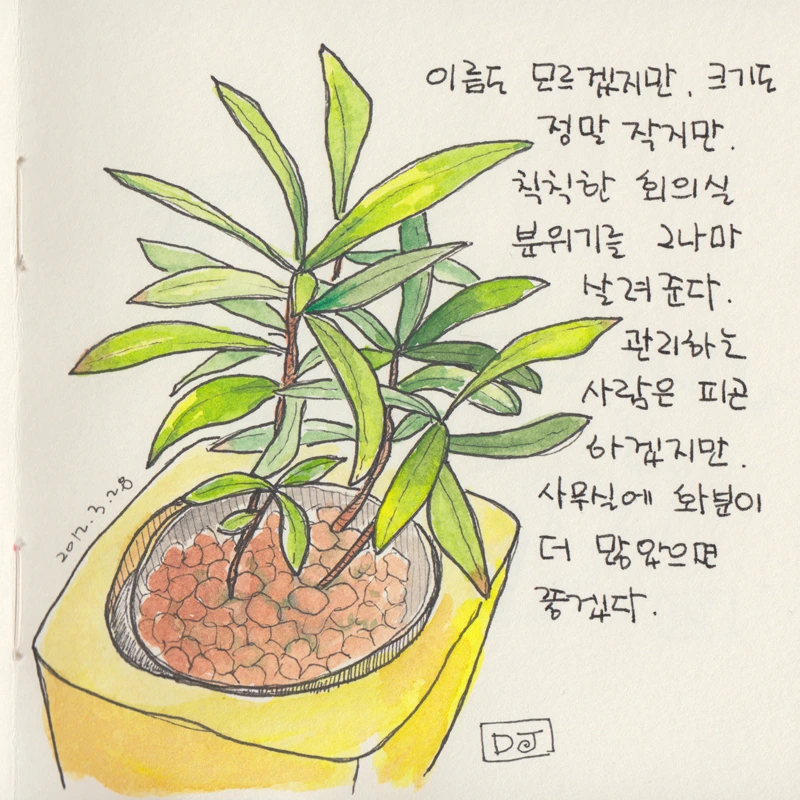 이름도 모르겠지만, 크기도
정말 작지만.
칙칙한 회의실
분위기를 그나마
살려준다.
관리하는
사람은 피곤
하겠지만.
사무실에 화분이
더 많았으면
좋겠다.
2012.3.28
DJ